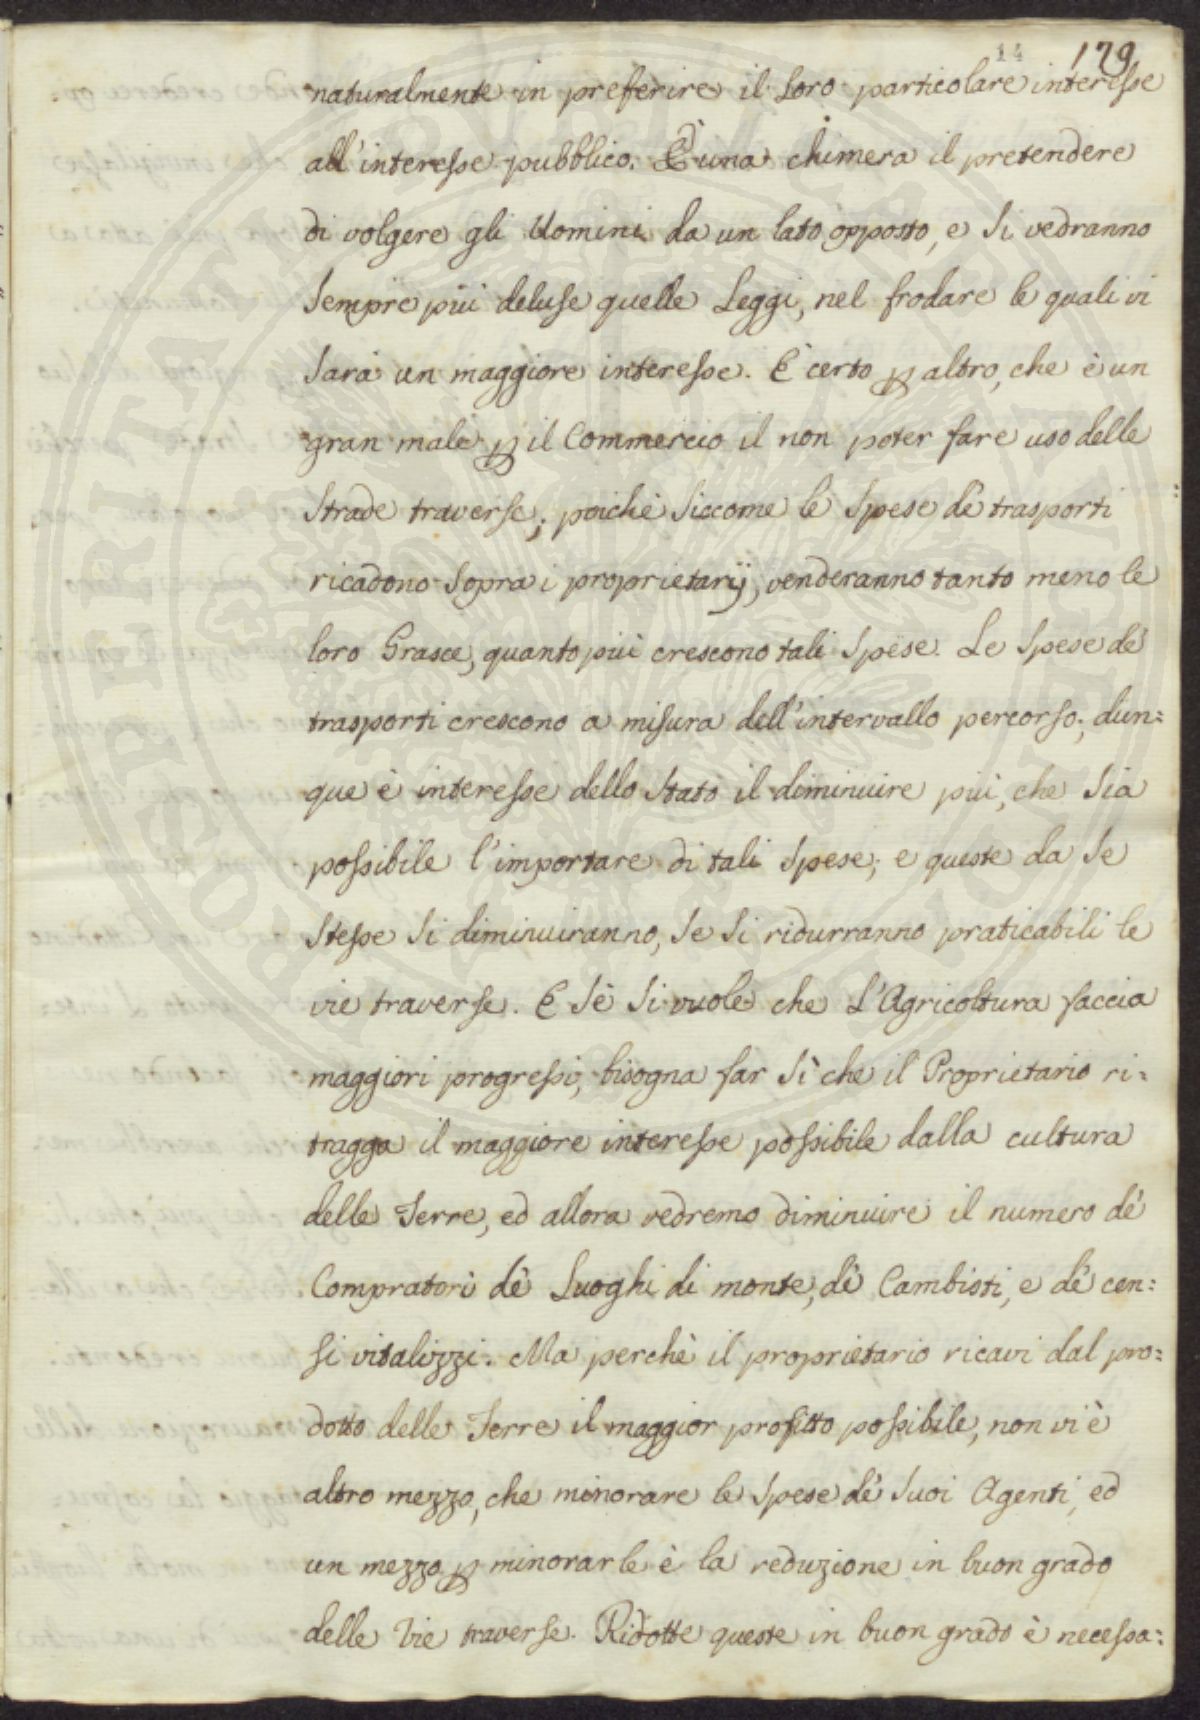 14 179
naturalmente in preferire il loro particolare interesse
all'interesse pubblico. È una chimera il pretendere
di volgere gli Uomini da un lato opposto, e si vedranno
sempre più deluse quelle Leggi, nel frodare le quali vi
sarà un maggiore interesse. È certo ꝑ altro, che è un
gran male ꝑ il Commercio il non poter fare uso delle
strade traverse; poichè siccome le spese dè trasporti
ricadono sopra i proprietarij, venderanno tanto meno le
loro Grasce, quanto più crescono tali spese. Le spese dè
trasporti crescono a misura dell'intervallo percorso; dun=
que è interesse dello Stato il diminuire più, che sia
possibile l'importare di tali spese; e queste da se
stesse si diminuiranno, se si ridurranno praticabili le
vie traverse. E sè si vuole che l'Agricoltura faccia
maggiori progressi, bisogna far sì che il Proprietario ri=
tragga il maggiore interesse possibile dalla cultura
delle Terre, ed allora vedremo diminuire il numero dè
Compratori dè Luoghi di monte, dè Cambisti, e dè cen=
si vitalizzi. Ma perchè il proprietario ricavi dal pro=
dotto delle Terre il maggior profitto possibile, non vi è
altro mezzo, che minorare le spese dè suoi Agenti, ed
un mezzo ꝑ minorarle è la reduzione in buon grado
delle Vie traverse. Ridotte queste in buon grado è necessa=
PROSPERITATI PUBLICAE